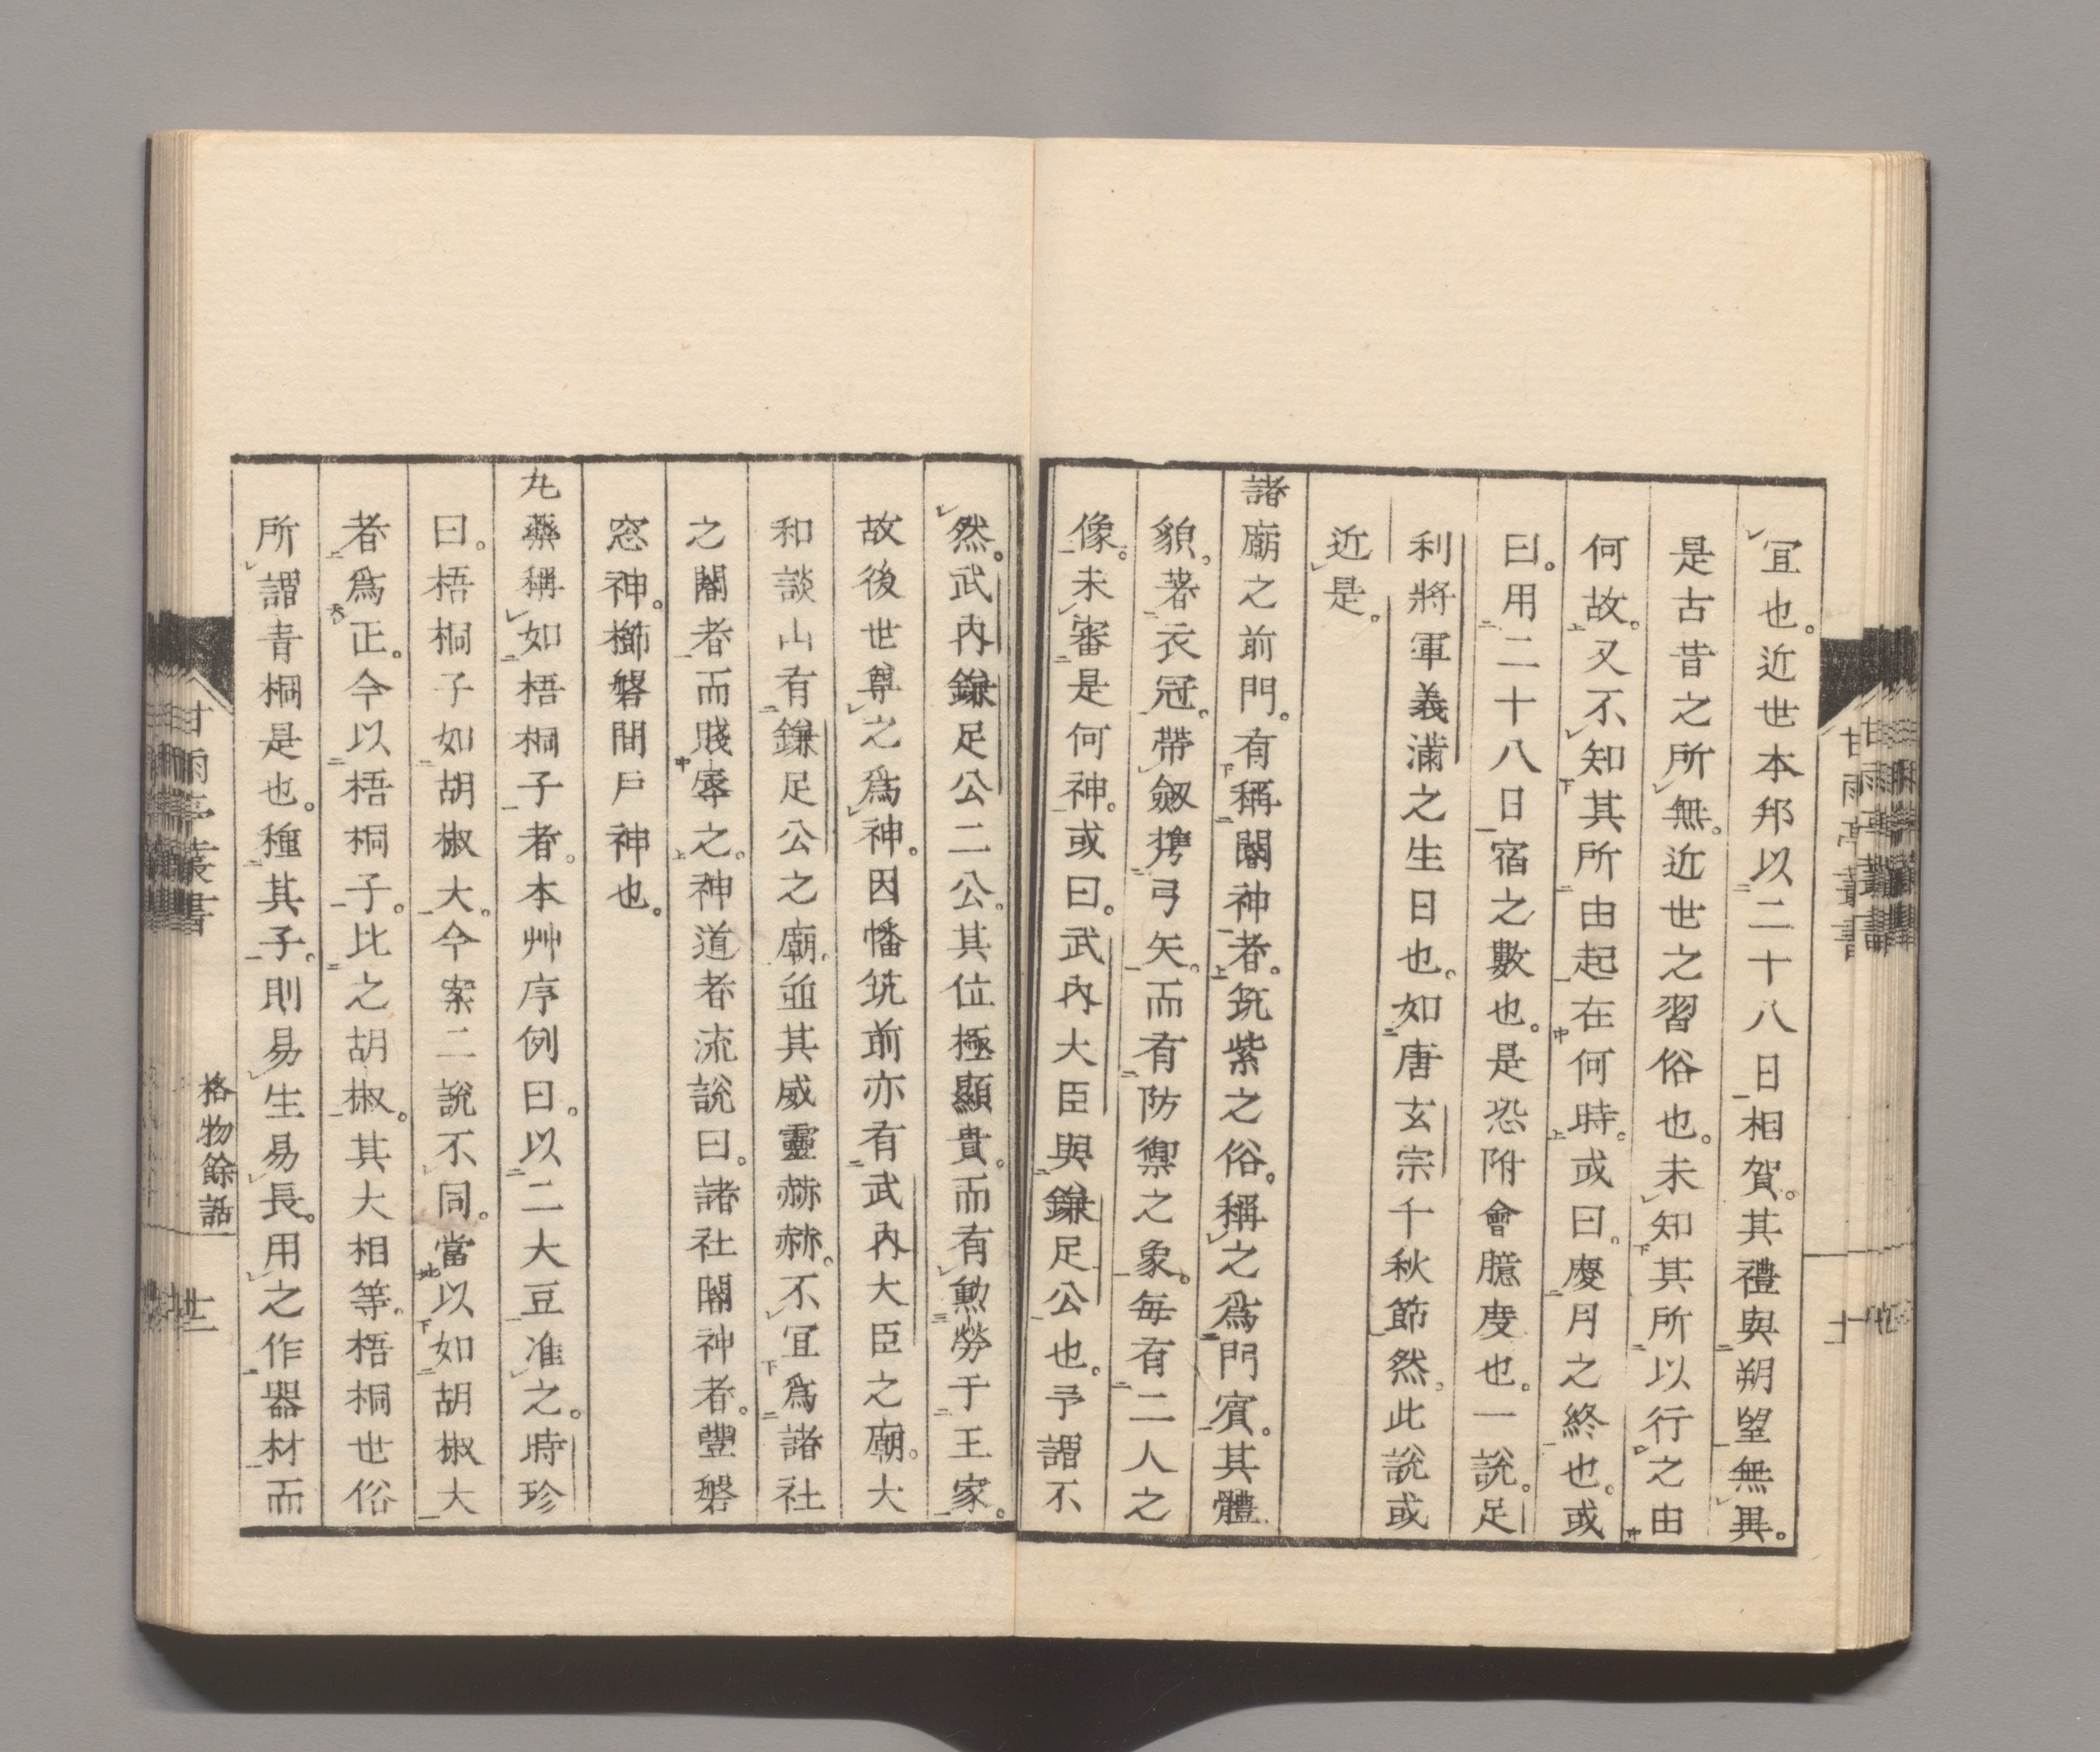 宜也。近世本邦以二十八日相賀。其禮與朔望無異。
是古昔之所無。近世之習俗也。未知其所以行之由
何故。又不知其所由起在何時。或曰。慶月之終也。或
曰。用二十八日宿之數也。是恐附會臆度也。一說。足
利將軍義滿之生日也。如唐玄宗千秋節然。此說或
近是。
諸廟之前門。有稱閽神者。筑紫之俗。稱之爲門賓。其體
貌。著衣冠。帶劔攜弓矢。而有防禦之象。每有二人之
像。未審是何神。或曰。武內大臣與鎌足公也。予謂不
然。武內鎌足公二公。其位極顯貴。而有勲勞于王家。
故後世尊之爲神。因幡筑前亦有武內大臣之廟。大
和談山有鎌足公之廟。並其威靈赫赫。不宜爲諸社
之閽者而賤辱之。神道者流說曰。諸社閽神者。豐磐
窓神。櫛磐間戶神也。
丸藥稱如梧桐子者。本艸序例曰。以二大豆准之。時珍
曰。梧桐子如胡椒大。今案二說不同。當以如胡椒大
者爲正。今以梧桐子。比之胡椒。其大相等。梧桐世俗
所謂青桐是也。種其子。則易生易長。用之作器材而
甘雨亭叢書
格物餘話
廿二
甘雨亭叢書